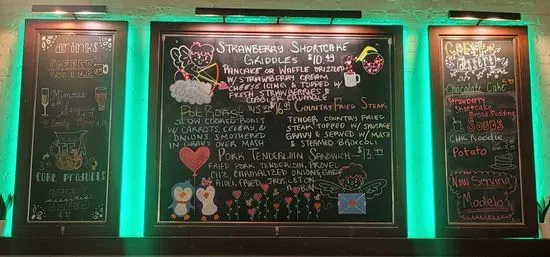 drinks
COFFEE
Mimosa
TEA
COKE PRODUCTS
STRAWBERRY SHORTCAKE
GRIDDLES $10.49
PANCAKE OR WAFFLE DRIZZLED
W/STRAWBERRY CREAM
CHEESE ICING & TOPPED W/
FRESH STRAWBERRIES &
POT ROAST
SLOW COOKED ROAST
W/ CARROTS, CELERY, &
ONIONS SMOTHERED
IN GRAVY OVER MASH
COUNTRY FRIED STEAK
TENDER COUNTRY FRIED
STEAK TOPPED W/ SAUSAGE
GRAVY & SERVED W/ MASH
& STEAMED BROCCOLI
PORK TENDERLOIN SANDWICH - $13.99
FRIED PORK TENDERLOIN, PROVEL
CHZ, CARAMALIZED ONIONS, GARLIC
AIOLI, FRIED
ON A BUN
Chocolate Cake
Strawberry
Bread Pudding
SOUPS
CHK NOODLE
POTATO
NOW SERVING
Modelo